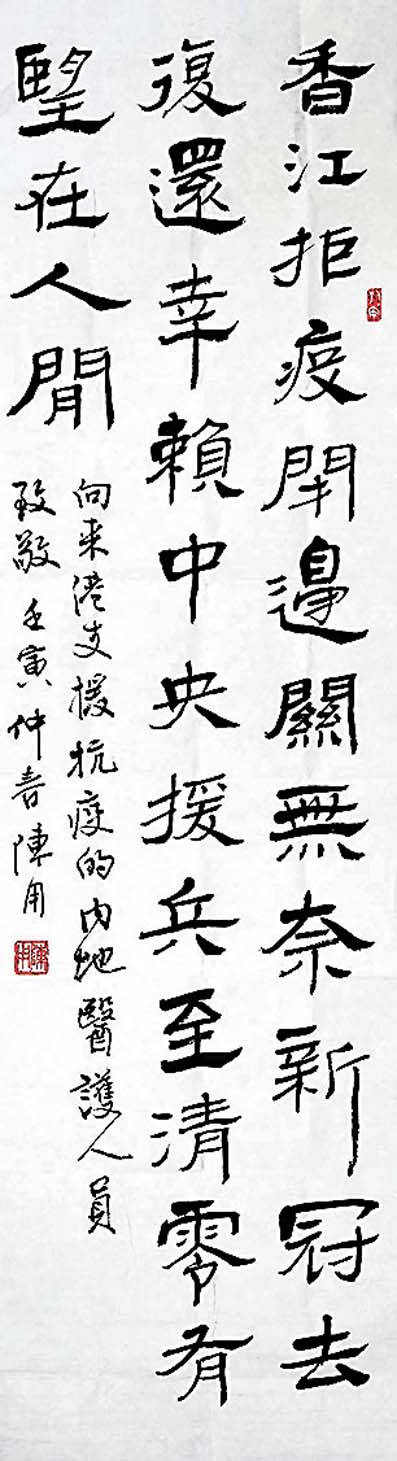 香江拒疫閉邊關無奈新冠去
復還幸賴中央援兵至清零有
望在人閒
向来港支援抗疫的内地醫護人員
致敬 壬寅仲春陳用